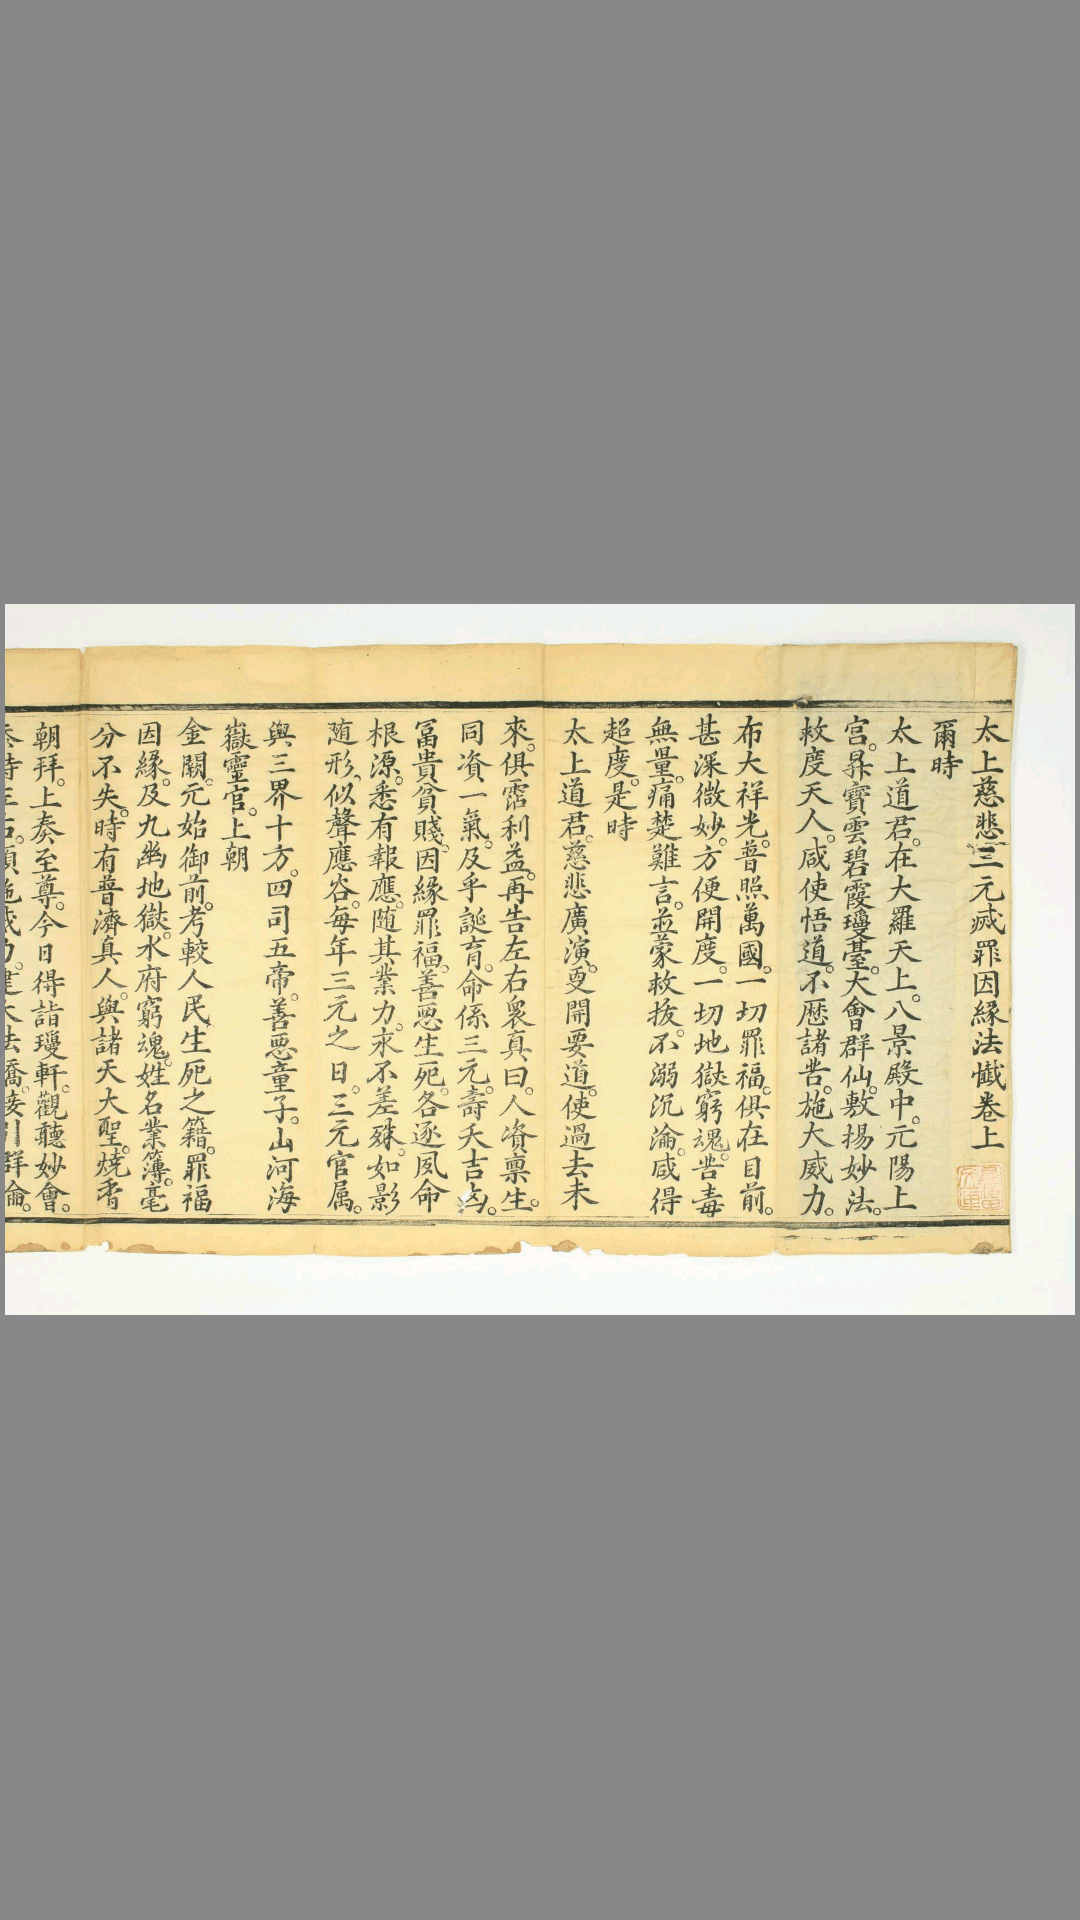 太上慈悲三元滅罪因緣法懺卷上
爾時
太上道君。在大羅天上。八景殿中。元陽上
宮。昇寶雲碧霞瓊臺。大會群仙。敷揚妙法。
救度天人。咸使悟道。不歷諸苦。施大威力。
布大祥光。普照萬國。一切罪福。俱在目前。
甚深微妙。方便開度。一切地獄。窮魂苦毒
無量。痛楚難言。並蒙救拔。不溺沉淪。咸得
超度。是時
太上道君。慈悲廣演。更開要道。使過去未
來。俱霑利益。再告左右衆真曰。人資稟生。
同資一氣。及乎誕育。命係三元。壽夭吉凶。
冨貴貧賤。因緣罪福。善惡生死。各逐夙命
根源。悉有報應。随其業力。永不差殊。如影
随形。似聲應谷。每年三元之日。三元官属。
與三界十方。四司五帝。善惡童子。山河海
嶽靈官。上朝
金闕。元始御前。考較人民。生死之籍。罪福
因緣。及九幽地獄。水府窮魂。姓名業簿。毫
分不失。時有普濟真人。與諸天大聖。燒香
朝拜。上奏至尊。今日得詣瓊軒。觀聽妙會。